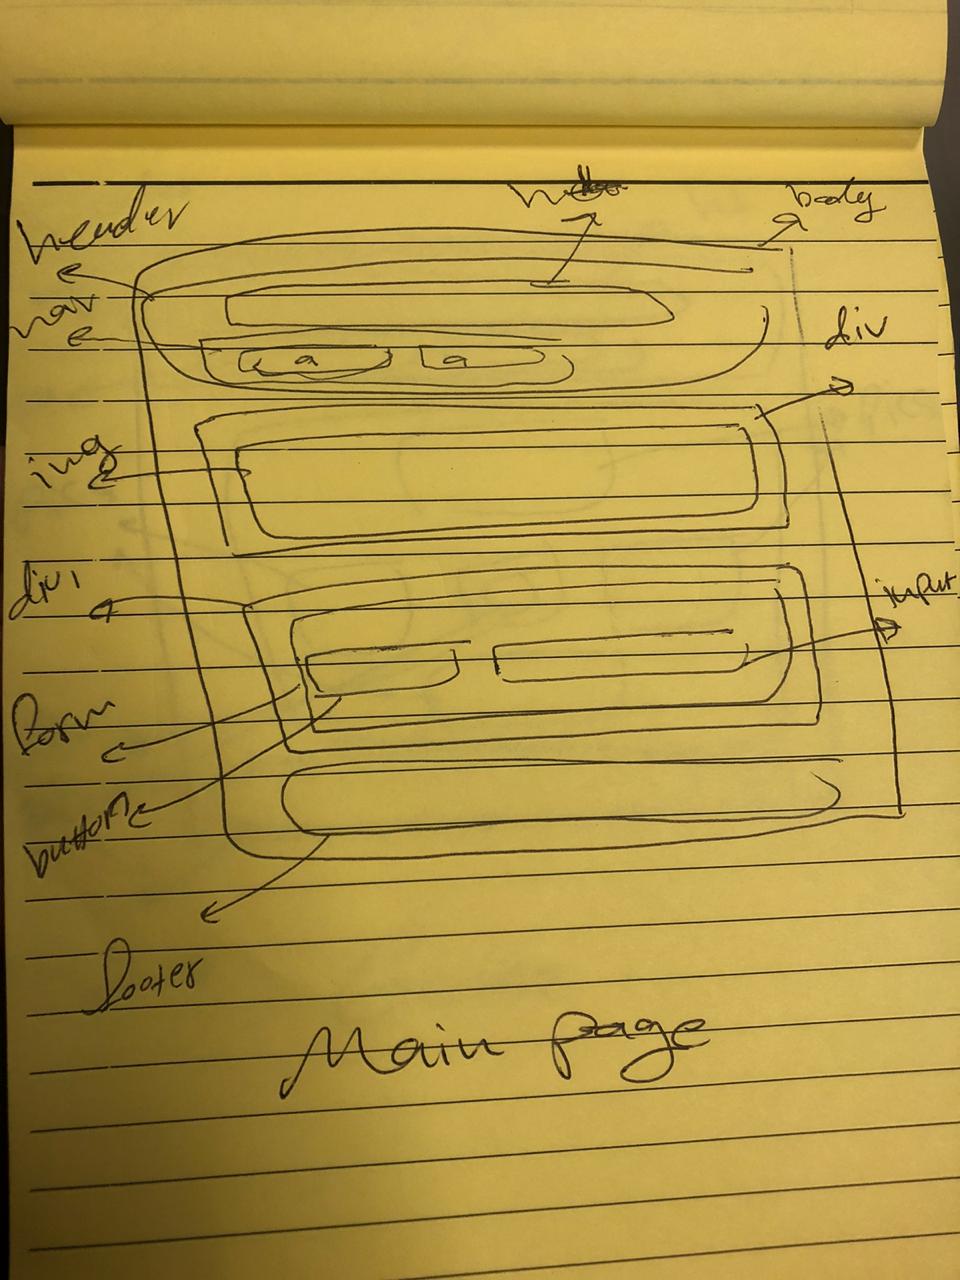 header
body
nav
a
a
div
img
div
input
form
button
footer
Main page